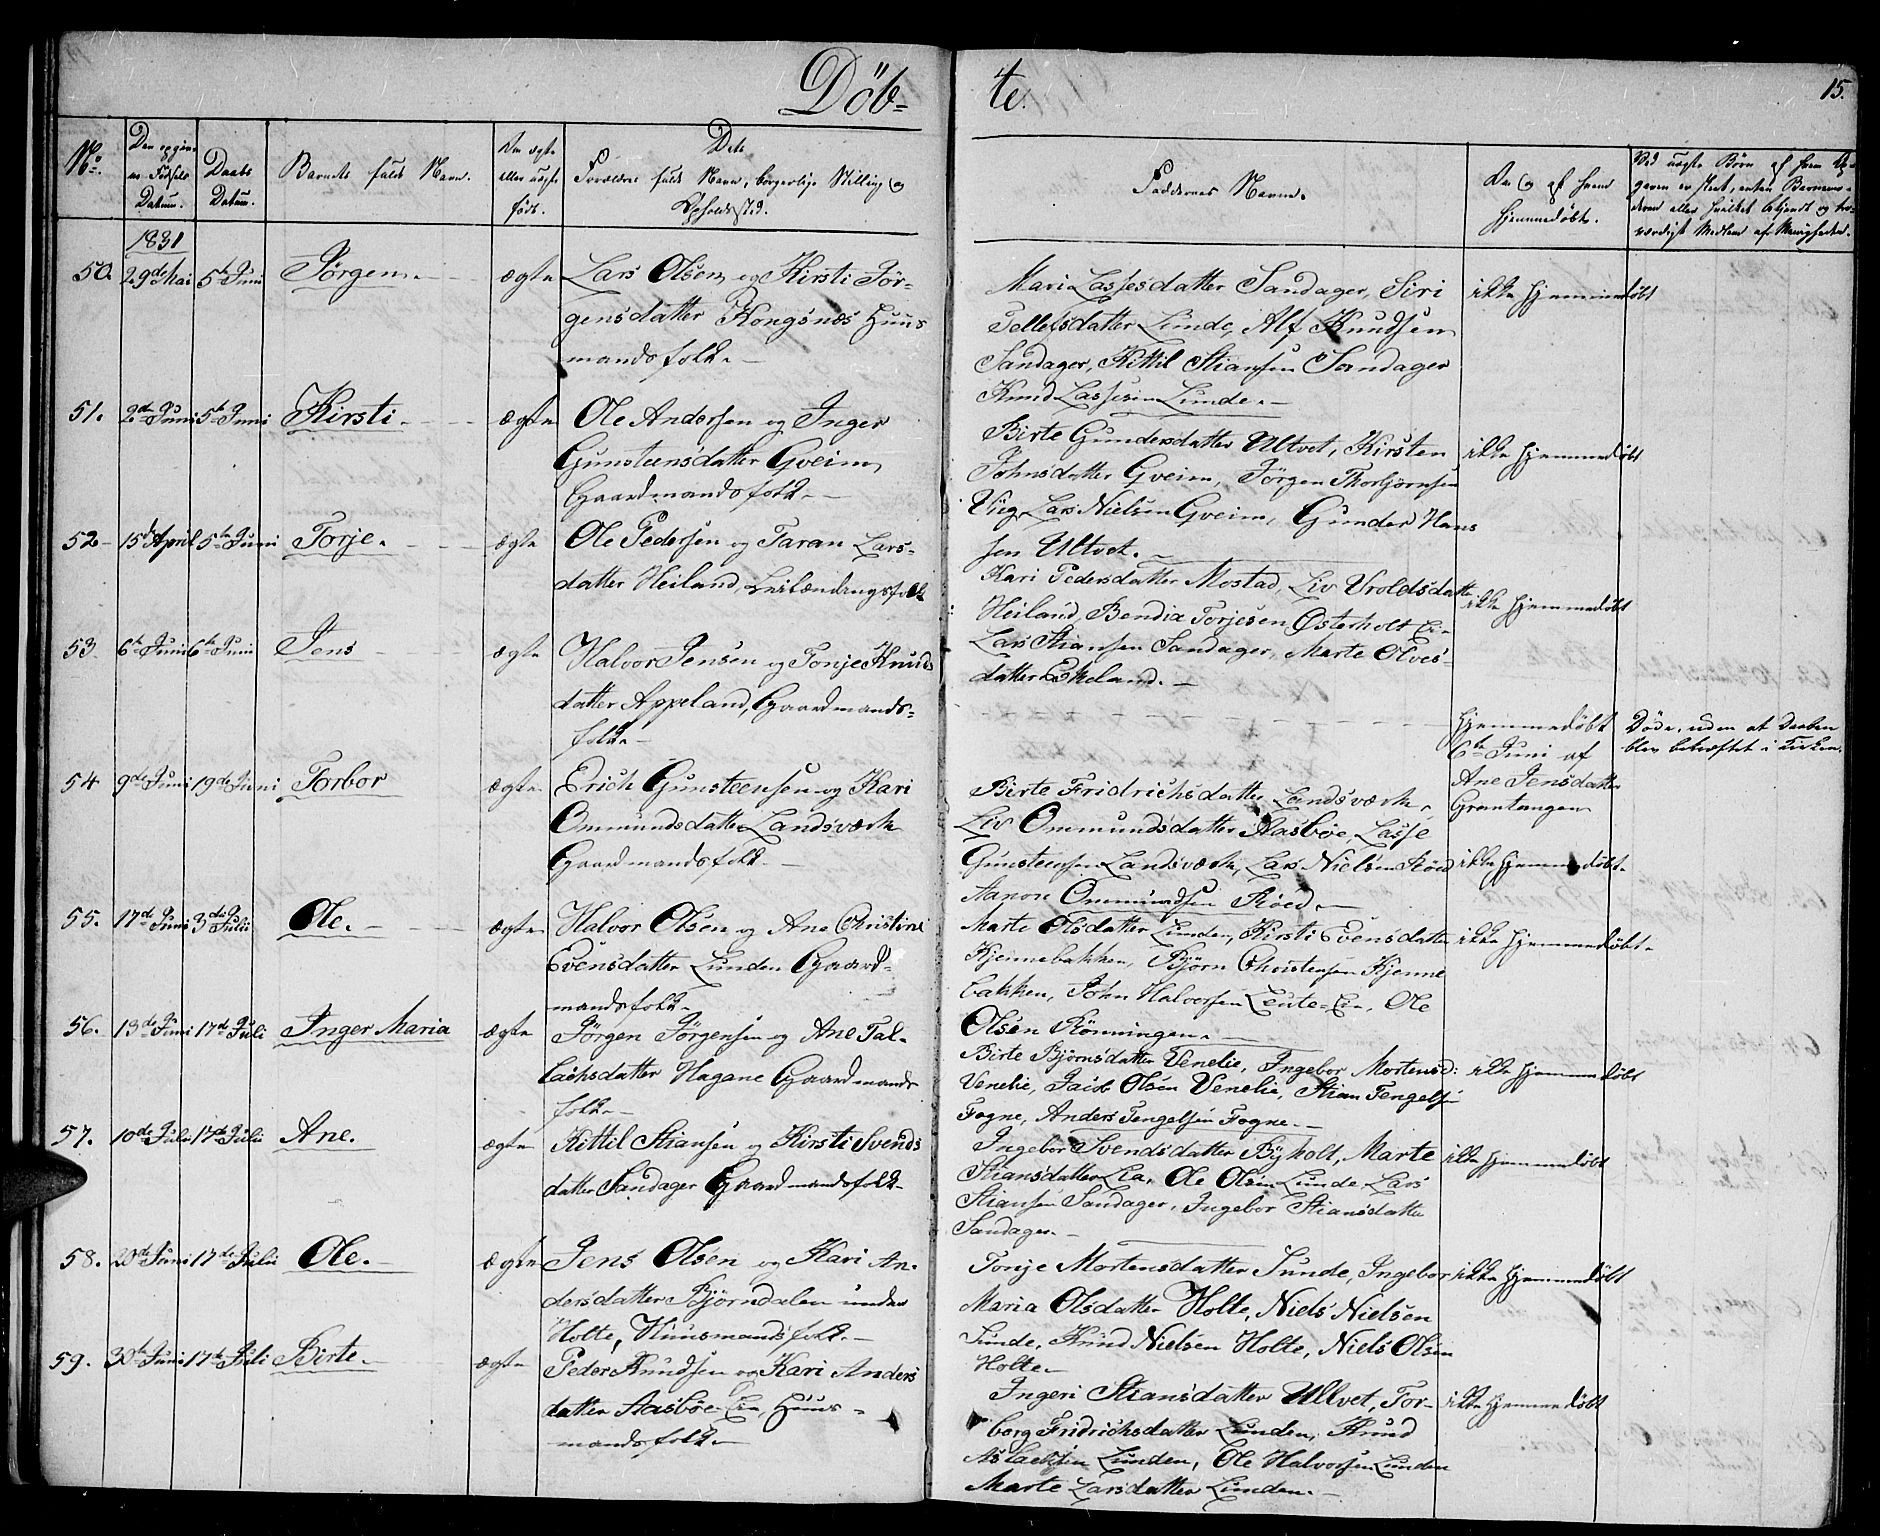 Döb-
te.
15.
No.
Den opgivne Födsels Datum.
Daabs Datum.
Barnets fulde Navn.
Om ægte eller uægte födt.
Dets Forældres fulde Navn, borgerlige Stilling og Opholdssted.
Faddernes Navne.
Om og af hvem hjemmedøbt.
Ved uægte Børn af hvem
1831
50. 29de Mai 5te Juni Jörgen. ægte Lars Olsen og Kirsti Jör-
gensdatter Kongsnæs Huus
mandsfolk.
Mari Lassesdatter Sandager, Siri
Tellefsdatter Lunde, Alf Knudsen
Sandager, Kittil Stiansen Sandager
Knud Lassesen Lunde.
ikke hjemmedøbt
51. 2den Juni 5te Juni Kirsti. ægte Ole Andersen og Inger
Gunsteensdatter Gveim
Gaardmandsfolk.
Birte Gundersdatter Ultvet, Kirsten
Johnsdatter Gveim, Jörgen Thorbjörnsen
Vüg, Lars Nielsen Gveim, Gunder Hans
sen Ultvet.
ikke hjemmedøbt
52 15de April 5te Juni Torje. ægte Ole Pedersen og Taran Lars-
datter Heiland, Leilændingsfolk
Kari Pedersdatter Mostad, Liv Vroldsdatter
Heiland, Bendix Torjesen Østerholt Ei-
Lars Stiansen Sandager, Marte Olves-
datter Ekeland.
ikke hjemmedøbt
53 6te Juni 6te Juni Jens ægte Halvor Jensen og Tonje Knuds
datter Appeland, Gaardmands-
folk
hjemmedøbt
6te Juni af
Ane Jensdatter
Grantangen
Døde, uden at Daaben
blev bekræftet i Kirken.
54 9de Juni 19de Juni Torbor ægte Erich Gunsteensen og Kari
Ommundsdatter Landsværk
Gaardmandsfolk.
Birte Fridrichsdatter Landsværk,
Liv Ommundsdatter Aasböe, Lasse
Gunsteensen Landsværk, Lars Nielsen Röed
Aanon Ommundsen Röed.
ikke hjemmedøbt.
55. 17de Juni 3die Julii Ole. ægte Halvor Olsen og Ane Christine
Evensdatter Lunden Gaard-
mandsfolk.
Marte Olsdatter Lunden, Kirsti Evensdatter
Kjennebakken, Björn Christensen Kjenne
bakken, John Halvorsen Leute-Ei, Ole
Olsen Rönningen.
ikke hjemmedøbt.
56. 13de Juni 17de Juli Inger Maria ægte Jörgen Jörgensen og Ane Tal-
lachsdatter Hagane Gaardmands
folk.
Birte Björnsdatter Venelie, Ingebor Mortensd:
Venelie, Jacob Olsen Venelie, Stian Tengelsen
Fogne, Anders Tengelsen Fogne.
ikke hjemmedøbt
57. 10de Julii 17de Julii Ane. ægte Kittil Stiansen og Kirsti Svends
datter Sandager Gaardmandsfolk.
Ingebor Svendsdatter Byholt, Marte
Stiansdatter Lia, Ole Olsen Lunde, Lars
Stiansen Sandager, Ingebor Stiansdatter
Sandager.
ikke hjemmedøbt
58. 20de Juni 17de Julii Ole. ægte Jens Olsen og Kari An-
dersdatter Björndalen under
Holte, Huusmandsfolk.
Tonje Mortensdatter Sunde, Ingebor
Maria Olsdatter Holte, Niels Nielsen
Sunde, Knud Nielsen Holte, Niels Olsen
Holte.
ikke hjemmedøbt
59. 30te Juni 17de Juli Birte. ægte Peder Knudsen og Kari Anders
datter Aasböe Eie, Huus-
mandsfolk
Ingeri Stiansdatter Ultvet, Tor-
berg Fridrichsdatter Lunden, Knud
Aslaksen Lunden, Ole Halvorsen Lunden
Marte Larsdatter Lunden.
ikke hjemmedøbt